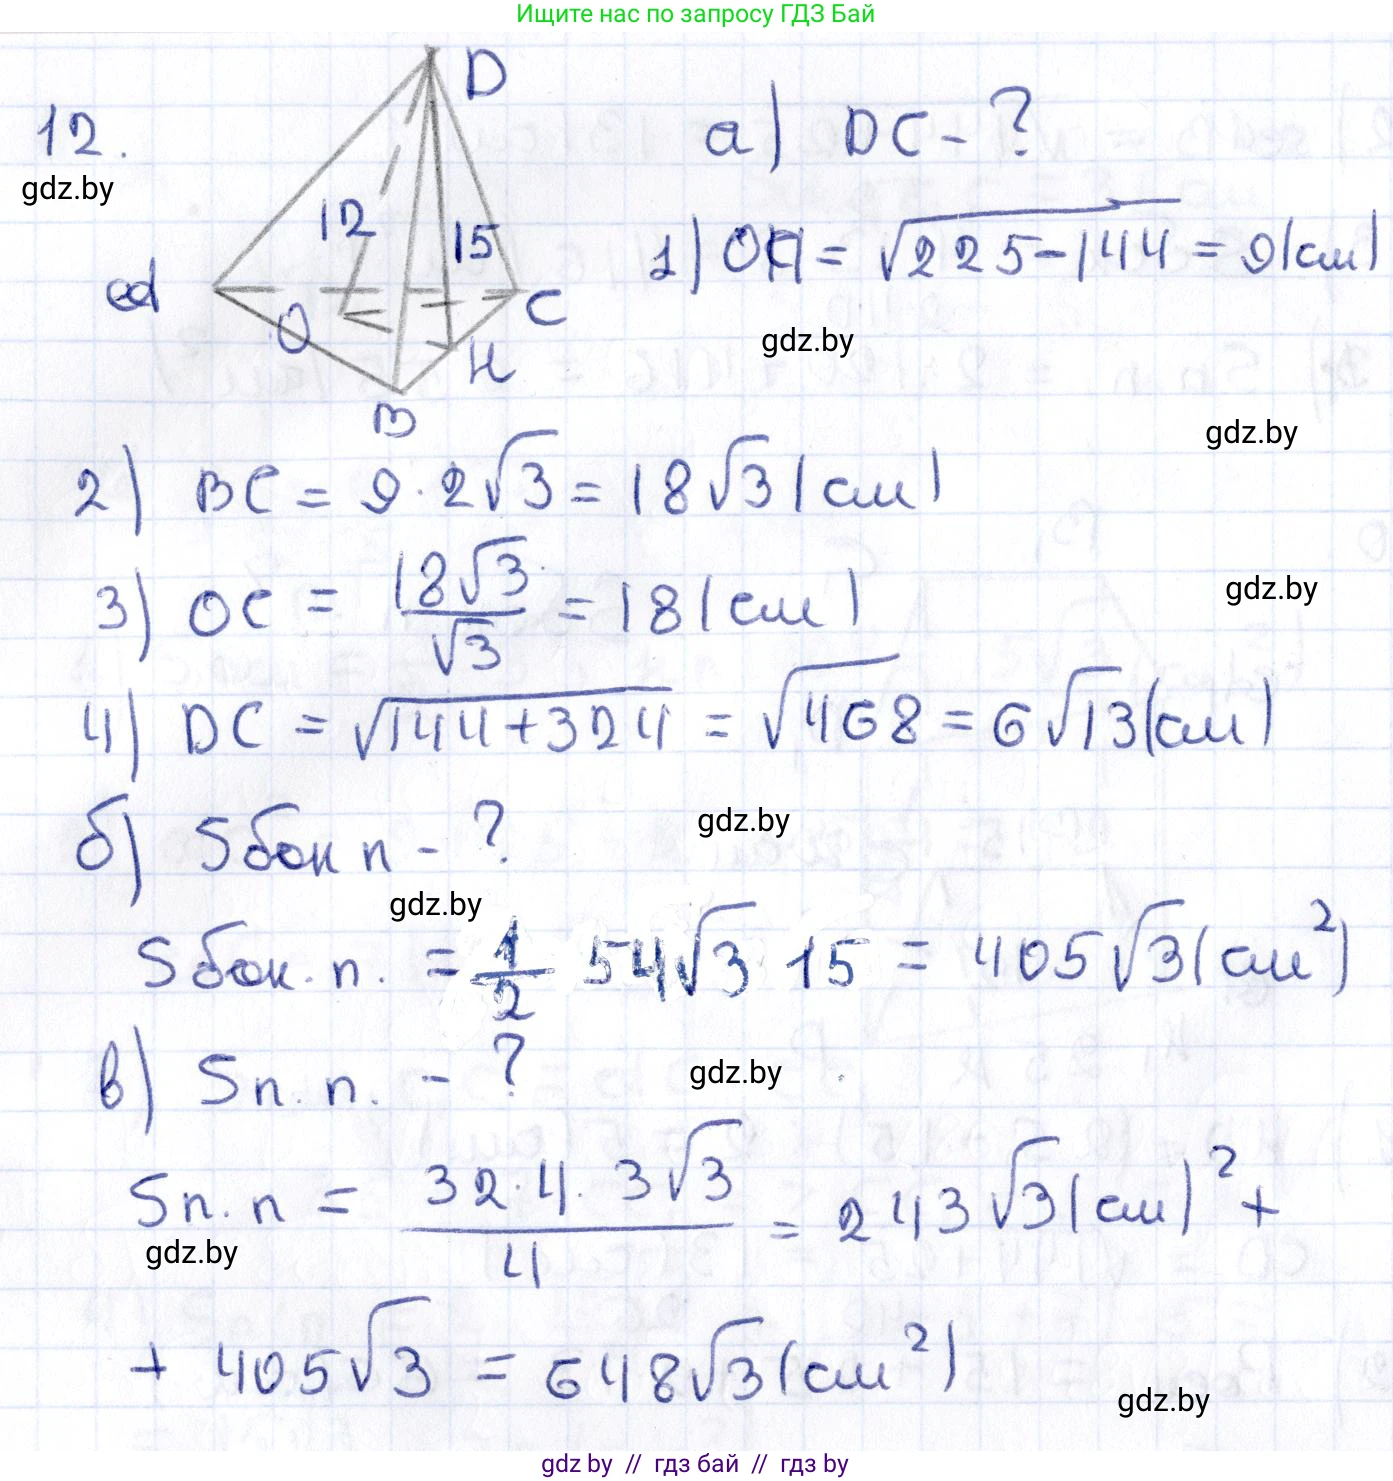 Ищите нас по запросу ГДЗ Бай
12.
gdz.by
D
12
15
O
C
H
B
а) DC - ?
1) OH = √225-144 = 9(см)
gdz.by
gdz.by
2) BC = 9·2√3 = 18√3(см)
3) OC = 18√3/√3 = 18(см)
gdz.by
4) DC = √144+324 = √468 = 6√13(см)
б) Sбок п - ?
gdz.by
gdz.by
Sбок.п. = 1/2 54√3 15 = 405√3(см²)
в) Sп.п. - ?
gdz.by
Sп.п = 32·4·3√3/4 = 243√3(см)² +
gdz.by
+ 405√3 = 648√3(см²)
gdz.by
gdz.by // гдз бай // гдз by